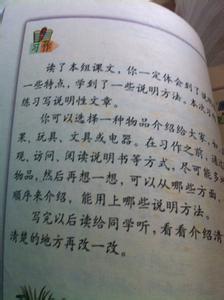 习作
读了本组课文，你一定体会到了说明
一些特点，学到了一些说明方法。本次习
练习写说明性文章。
你可以选择一种物品介绍给大家，如
果、玩具、文具或电器。在习作之前，通过
观、访问、阅读说明书等方式，尽可能多
物品，然后再想一想，可以从哪些方面、
顺序来介绍，能用上哪些说明方法。
写完以后读给同学听，看看介绍清
清楚的地方再改一改。